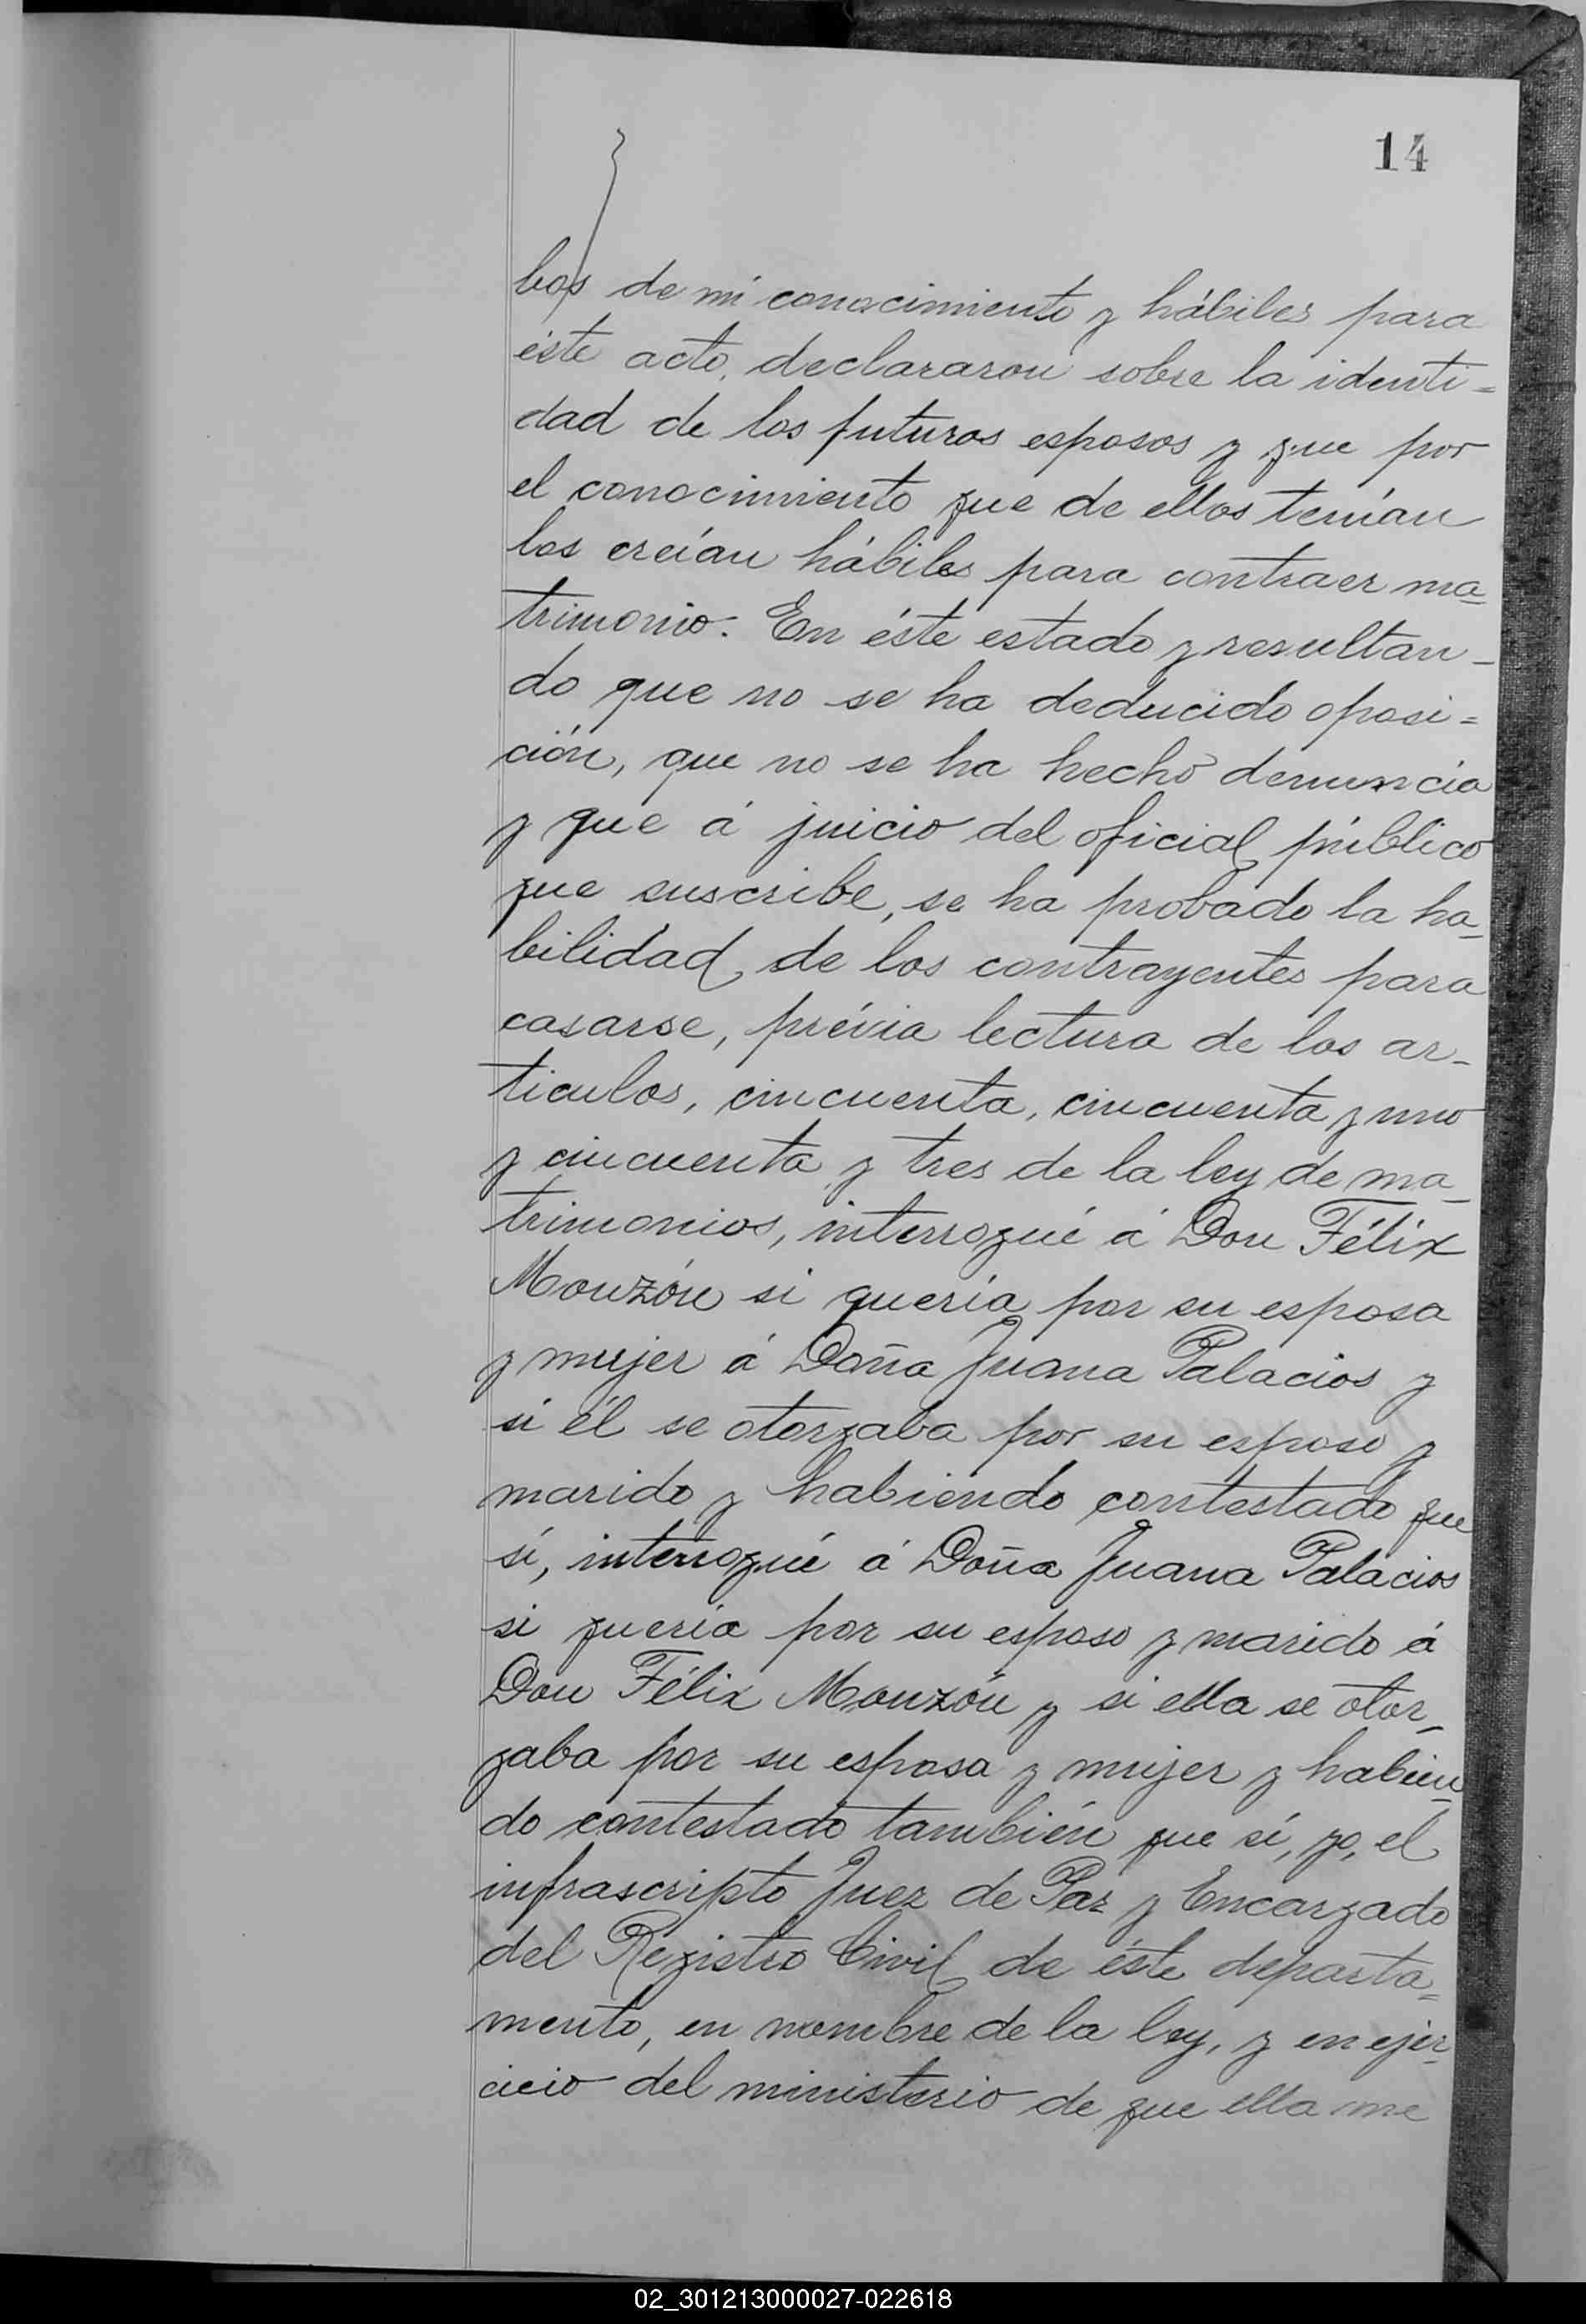 14
bos de mi conocimiento y hábiles para
éste acto, declararon sobre la identi=
dad de los futuros esposos y que por
el conocimiento que de ellos tenían
los creían hábiles para contraer ma-
trimonio. En éste estado y resultan-
do que no se ha deducido oposi=
ción, que no se ha hecho denuncia
y que á juicio del oficial público
que suscribe, se ha probado la ha-
bilidad de los contrayentes para
casarse, prévia lectura de los ar-
ticulos, cincuenta, cincuenta y uno
y cincuenta y tres de la ley de ma-
trimonios, interrogué á Don Félix
Monzón si quería por su esposa
y mujer á Doña Juana Palacios y
si él se otorgaba por su esposo y
marido y habiendo contestado que
sí, interrogué á Doña Juana Palacios
si quería por su esposo y marido á
Don Félix Monzón y si ella se otor-
gaba por su esposa y mujer y habien-
do contestado también que sí, yo, el
infrascripto Juez de Paz y Encargado
del Registro Civil de éste departa=
mento, en nombre de la ley, y en ejer-
cicio del ministerio de que ella me
02_301213000027-022618